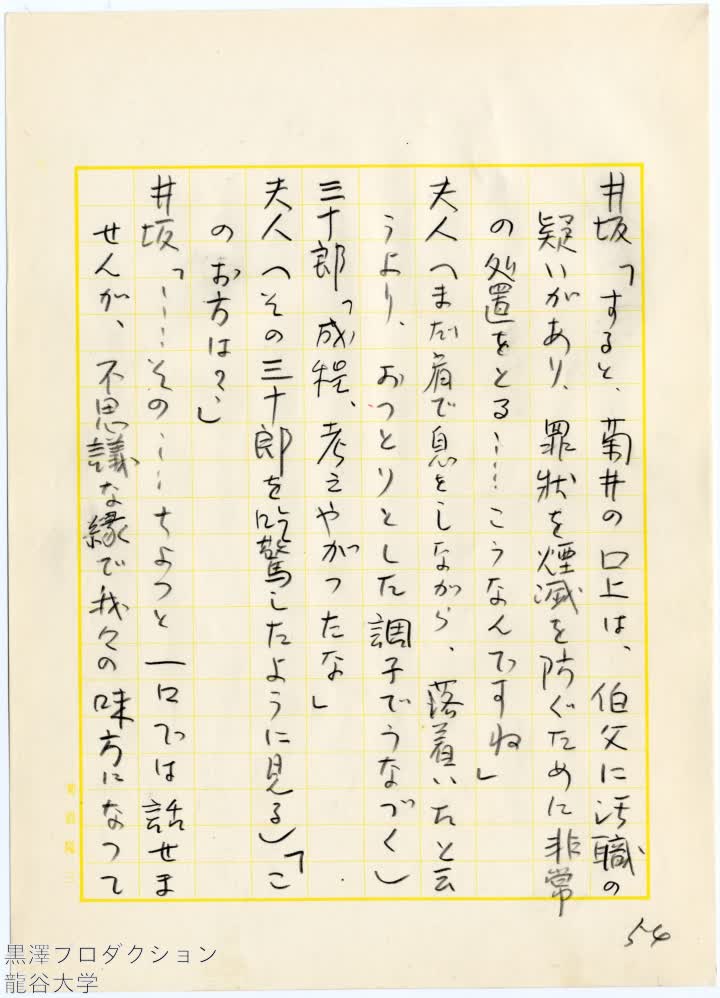 井坂「すると、菊井の口上は、伯父に汚職の
疑いがあり、罪状を煙滅を防ぐために非常
の処置をとる……こうなんですね」
夫人へまだ肩で息をしながら、落着いたと云
うより、おつとりとした調子でうなづく）
三十郎「成程、考えやがつたな」
夫人へその三十郎を吃驚したように見る）「こ
のお方は？」
井坂「……その……ちよつと一口では話せま
せんが、不思議な縁で我々の味方になつて
54
黒澤プロダクション
龍谷大学